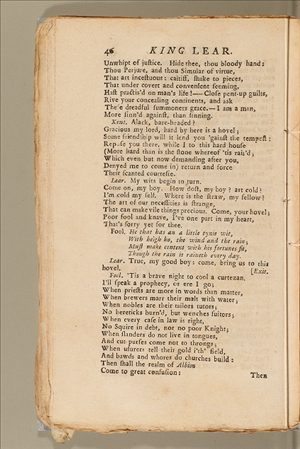 46 KING LEAR.
Unwhipt of justice. Hide thee, thou bloody hand:
Thou Perjure, and thou Simular of virtue,
That art incestuous: caitiff, shake to pieces,
That under covert and convenient seeming,
Hast practis'd on man's life!—Close pent-up guilts,
Rive your concealing continents, and ask
These dreadful summoners grace.—I am a man,
More sinn'd against, than sinning.
Kent. Alack, bare-headed?
Gracious my lord, hard by here is a hovel;
Some friendship will it lend you 'gainst the tempest:
Repose you there, while I to this hard house
(More hard than is the stone whereof 'tis rais'd;
Which even but now demanding after you,
Denyed me to come in) return and force
Their scanted courtesie.
Lear. My wits begin to turn.
Come on, my boy. How dost, my boy? art cold?
I'm cold my self. Where is the straw, my fellow?
The art of our necessities is strange,
That can make vile things precious. Come, your hovel;
Poor fool and knave, I've one part in my heart,
That's sorry yet for thee.
Fool. He that has an a little tynie wit,
With heigh ho, the wind and the rain;
Must make content with his fortunes fit,
Though the rain it raineth every day.
Lear. True, my good boy: come, bring us to this
hovel. [Exit.
Fool. 'Tis a brave night to cool a curtezan.
I'll speak a prophecy, or ere I go;
When priests are more in words than matter,
When brewers marr their malt with water;
When nobles are their tailors tutors,
No hereticks burn'd, but wenches suitors;
When every case in law is right,
No Squire in debt, nor no poor Knight;
When slanders do not live in tongues,
And cut purses come not to throngs;
When usurers tell their gold i'th' field,
And bawds and whores do churches build:
Then shall the realm of Albion
Come to great confusion: Then